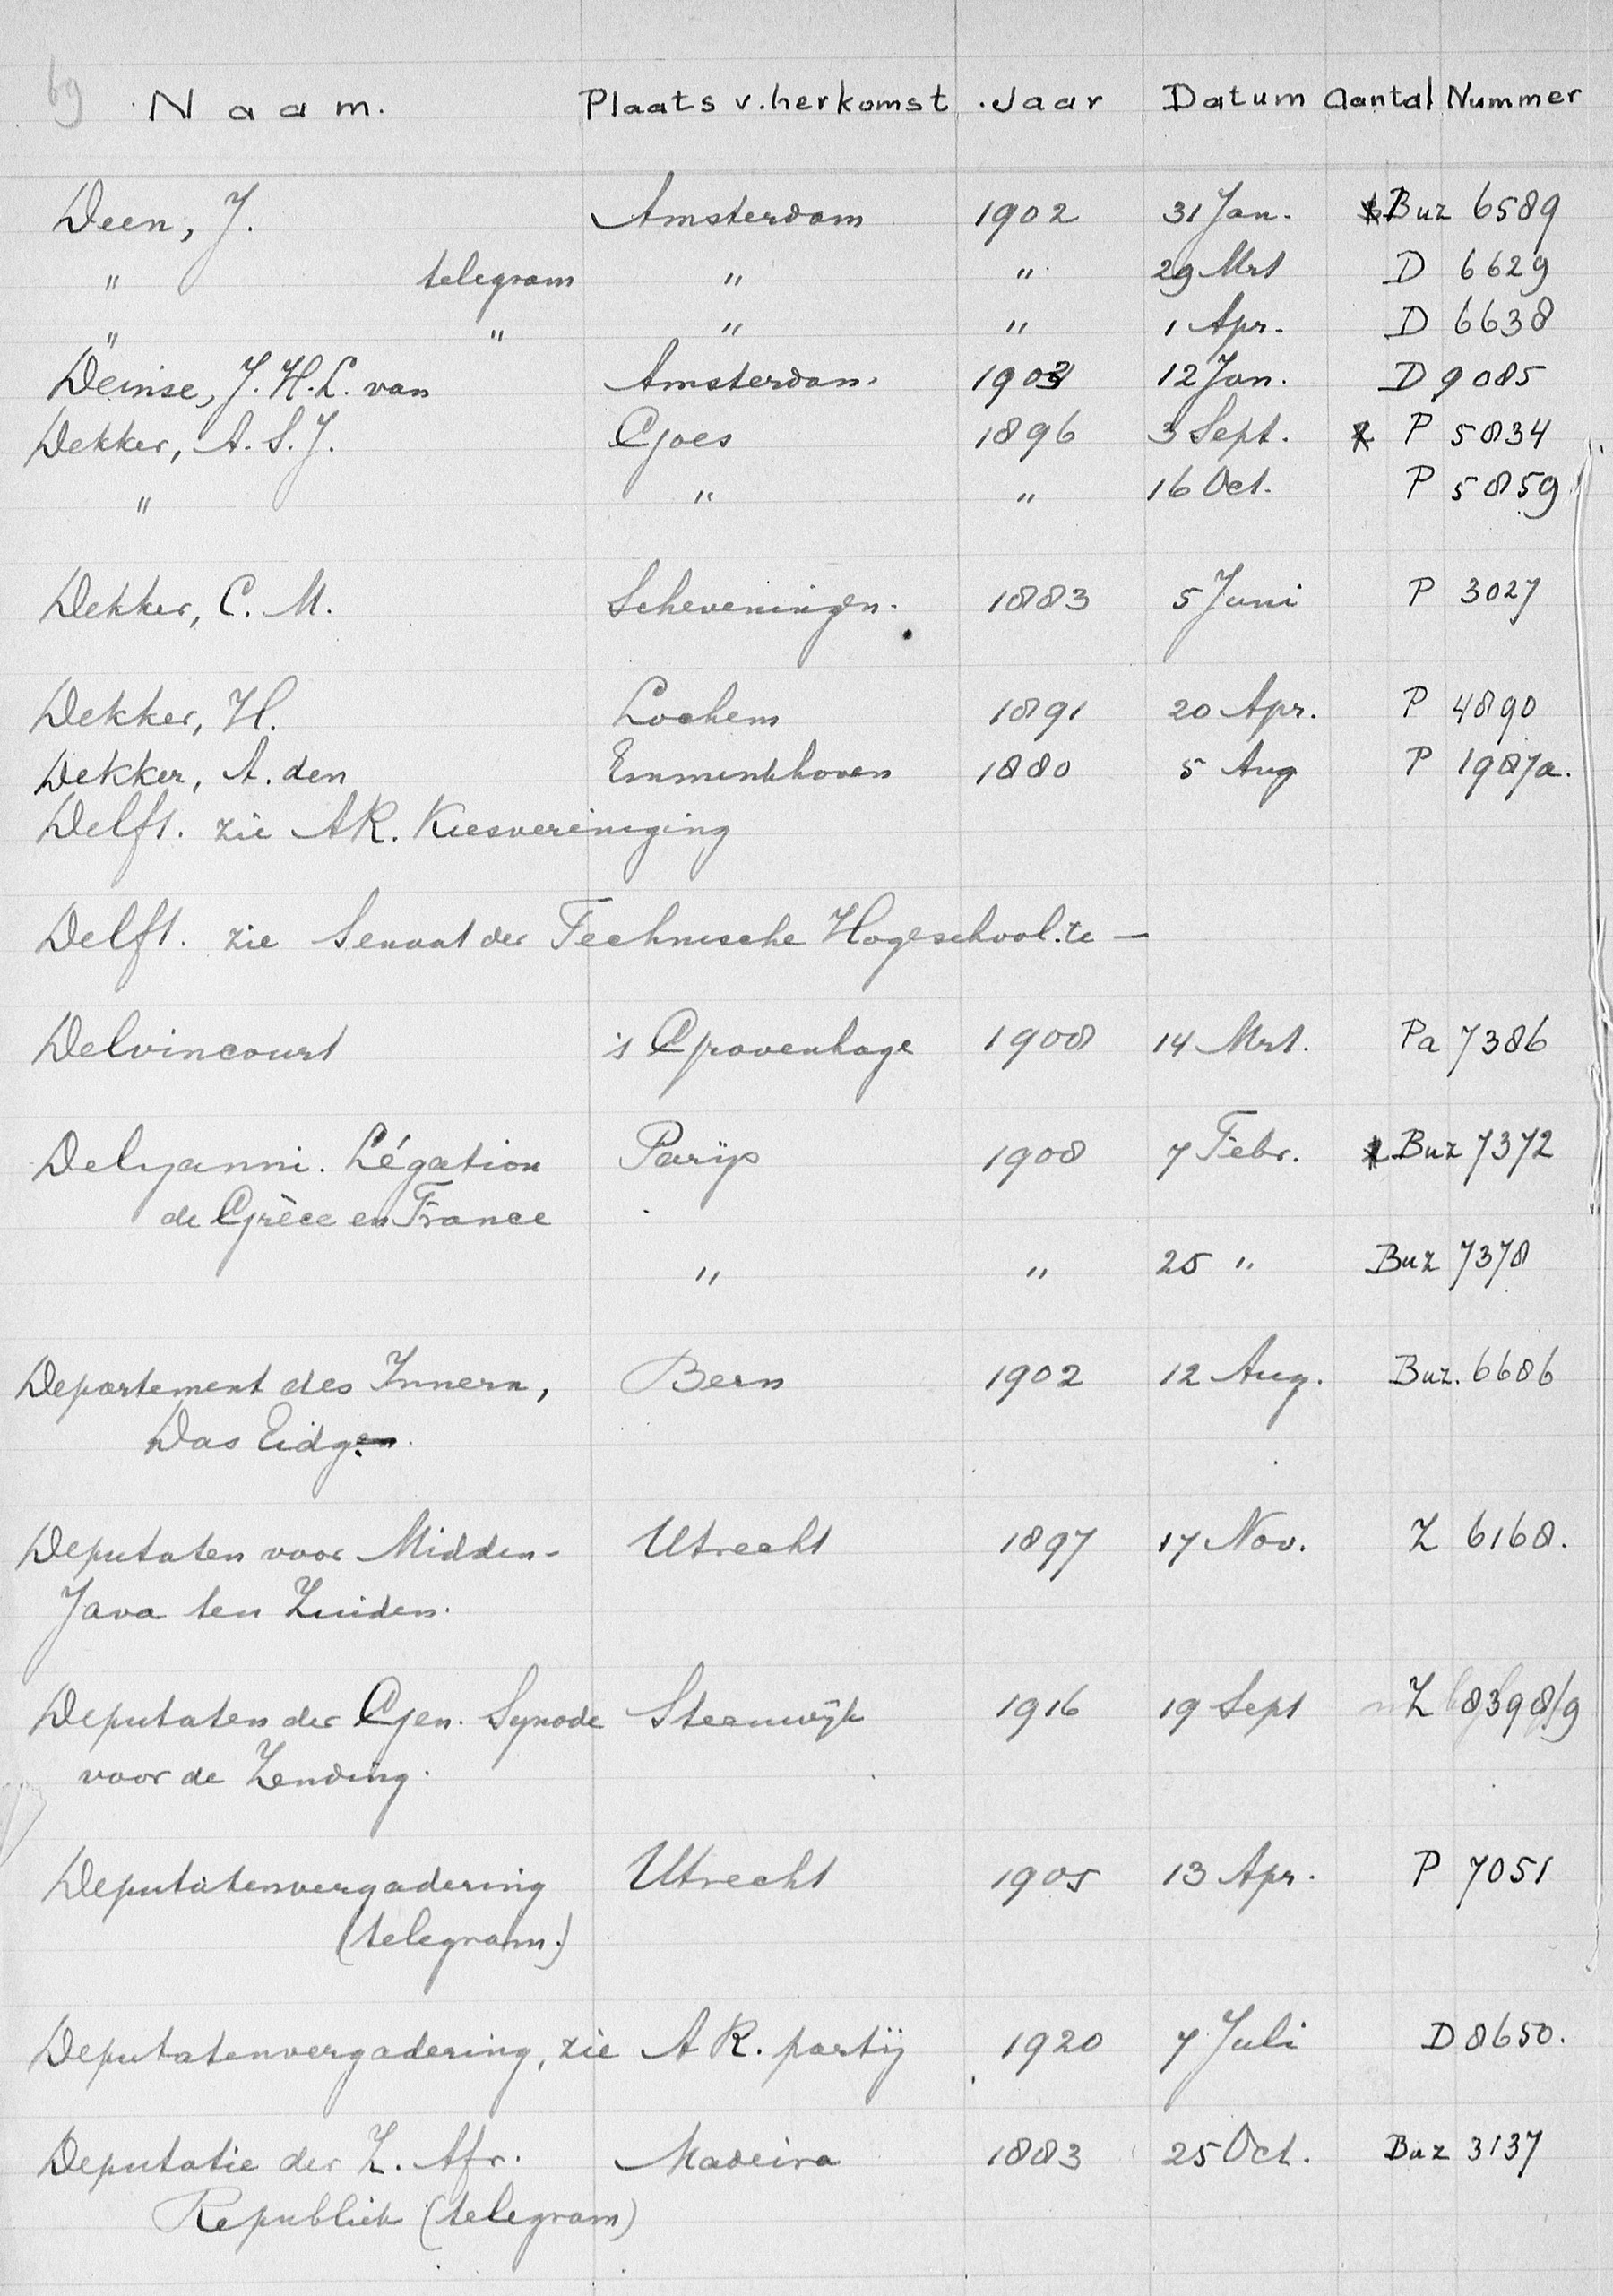 69 Naam. Plaats v. herkomst Jaar Datum Aantal Nummer
Deen, J. Amsterdam 1902 31 Jan. Buz 6589
" telegram " " 29 Mrt D 6629
" " " " 1 Apr. D 6638
Deinse, J. H. L. van Amsterdam 1903 12 Jan. D 9085
Dekker, A. S. J. Goes 1896 3 Sept. 2 P 5834
" " " 16 Oct. P 5859
Dekker, C. M. Scheveningen. 1883 5 Juni P 3027
Dekker, H. Lochem 1891 20 Apr. P 4890
Dekker, A. den Emminkhoven 1880 5 Aug P 1987a.
Delft. zie AR. Kiesvereniging
Delft. zie Senaat der Technische Hogeschool. te —
Delvincourt 's Gravenhage 1908 14 Mrt. Pa 7386
Delyanni. Légation Parijs 1908 7 Febr. 2 Buz 7372
de Grèce en France
" " 25 " Buz 7378
Departement des Innern, Bern 1902 12 Aug. Buz. 6686
Das Eidg.
Deputaten voor Midden- Utrecht 1897 17 Nov. Z 6168.
Java ten Zuiden.
Deputaten der Gen. Synode Steenwijk 1916 19 Sept Z 8398/9
voor de Zending.
Deputatenvergadering Utrecht 1905 13 Apr. P 7051
(telegram.)
Deputatenvergadering, zie AR. partij 1920 7 Juli D 8650.
Deputatie der Z. Afr. Madeira 1883 25 Oct. Buz 3137
Republiek (telegram)